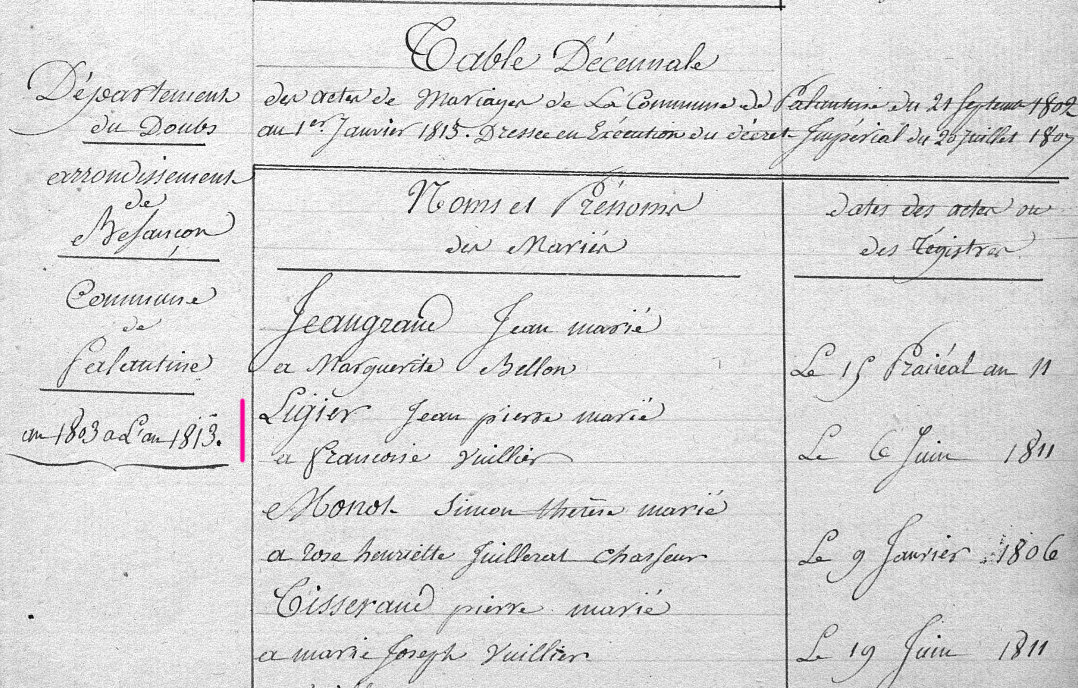 Table Décennale
des actes de Mariages de La Commune de Palantine du 21 Septembre 1802
au 1er Janvier 1813. Dressée en Exécution du décret Impérial du 20 juillet 1807
Département
du Doubs
arrondissement
de
Besançon
Commune
de
Palantine
an 1803 a L'an 1813.
Noms et Prénoms
des Mariés
dates des actes ou
des Régistres
Jeangrand Jean marié
a Marguerite Bellon
Le 15 Prairéal an 11
Ligier Jean pierre marié
a francoise Vuillier
Le 6 Juin 1811
Monot Simon thérèse marié
a rose henriette Juillerat Chasseur
Le 9 Janvier 1806
Tisserand pierre marié
a marie Joseph Vuillier
Le 19 Juin 1811